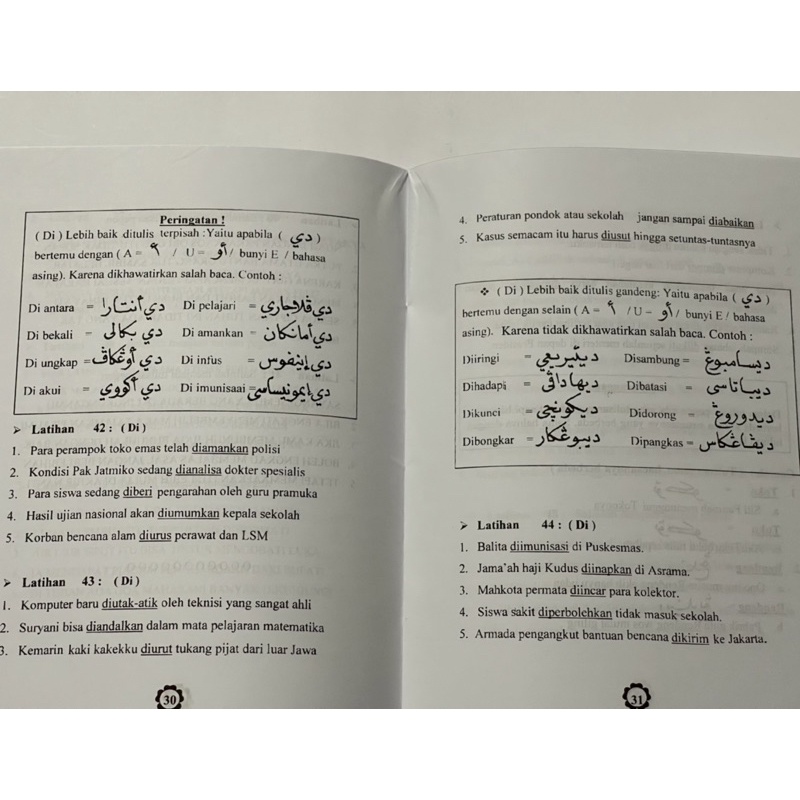 Peringatan !
( Di ) Lebih baik ditulis terpisah :Yaitu apabila ( دي )
bertemu dengan ( A = أ / U = أو / bunyi E / bahasa
asing). Karena dikhawatirkan salah baca. Contoh :
Di antara = دي أنتارا Di pelajari = دي ڤلاجاري
Di bekali = دي بكالي Di amankan = دي أمانكان
Di ungkap = دي أوڠكاڤ Di infus = دي إينفوس
Di akui = دي أكووي Di imunisaai = دي إيمونيساسي
➢ Latihan 42 : ( Di )
1. Para perampok toko emas telah diamankan polisi
2. Kondisi Pak Jatmiko sedang dianalisa dokter spesialis
3. Para siswa sedang diberi pengarahan oleh guru pramuka
4. Hasil ujian nasional akan diumumkan kepala sekolah
5. Korban bencana alam diurus perawat dan LSM
➢ Latihan 43 : ( Di )
1. Komputer baru diutak-atik oleh teknisi yang sangat ahli
2. Suryani bisa diandalkan dalam mata pelajaran matematika
3. Kemarin kaki kakekku diurut tukang pijat dari luar Jawa
30
4. Peraturan pondok atau sekolah jangan sampai diabaikan
5. Kasus semacam itu harus diusut hingga setuntas-tuntasnya
❖ ( Di ) Lebih baik ditulis gandeng: Yaitu apabila ( دي )
bertemu dengan selain ( A = أ / U – أو / bunyi E / bahasa
asing). Karena tidak dikhawatirkan salah baca. Contoh :
Diiringi = ديئيريڠي Disambung = ديسامبوڠ
Dihadapi = ديهاداڤي Dibatasi = ديباتاسي
Dikunci = ديكونچي Didorong = ديدوروڠ
Dibongkar = ديبوڠكار Dipangkas = ديڤاڠكاس
➢ Latihan 44 : ( Di )
1. Balita diimunisasi di Puskesmas.
2. Jama'ah haji Kudus diinapkan di Asrama.
3. Mahkota permata diincar para kolektor.
4. Siswa sakit diperbolehkan tidak masuk sekolah.
5. Armada pengangkut bantuan bencana dikirim ke Jakarta.
31